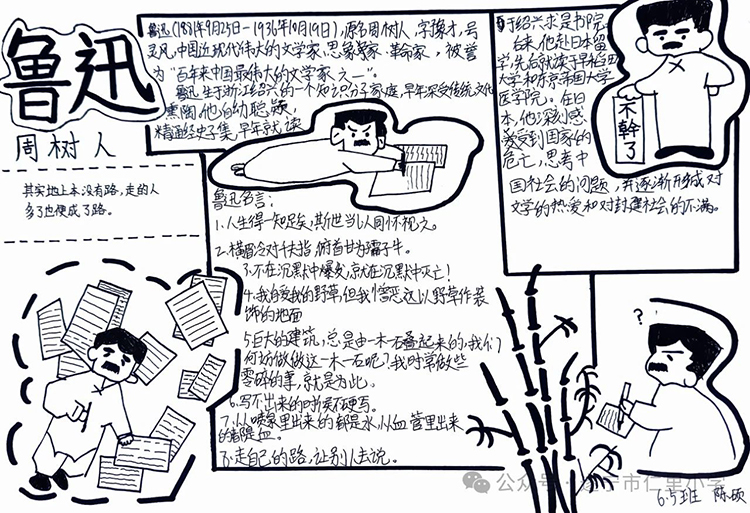 鲁迅
周树人
其实地上本没有路,走的人
多了也便成了路。
鲁迅(1881年9月25日-1936年10月19日),原名周树人,字豫才,号
灵凡,中国近现代伟大的文学家、思象导家、革命家,被誉
为"百年来中国最伟大的文学家之一"。
鲁迅生于浙江绍兴的一个知识分子家庭,早年深受传统文化
熏陶,他自幼聪颖,
精通经史子集,早年就读
于绍兴求是书院,
后来,他赴日本留
学,先后就读于早稻田
大学和东京帝国大学
医学院。在日
本,他深刻感
受到国家的
危亡,思考中
国社会的问题,并逐渐形成对
文学的热爱和对封建社会的不满。
不幹了
鲁迅名言:
1.人生得一知足矣,斯世当以同怀视之。
2.横眉冷对千夫指,俯首甘为孺子牛。
3.不在沉默中爆发,就在沉默中灭亡!
4.我自爱我的野草,但我憎恶这以野草作装
饰的地面
5.巨大的建筑,总是由一木一石叠起来的,我们
何妨做做这一木一石呢?我时常做些
零碎的事,就是为此。
6.写不出来的时候不硬写。
7.从喷泉里出来的都是水,从血管里出来
的都是血。
8.走自己的路,让别人去说。
?
公众号·宁市仁里小学
6.5班 陈硕